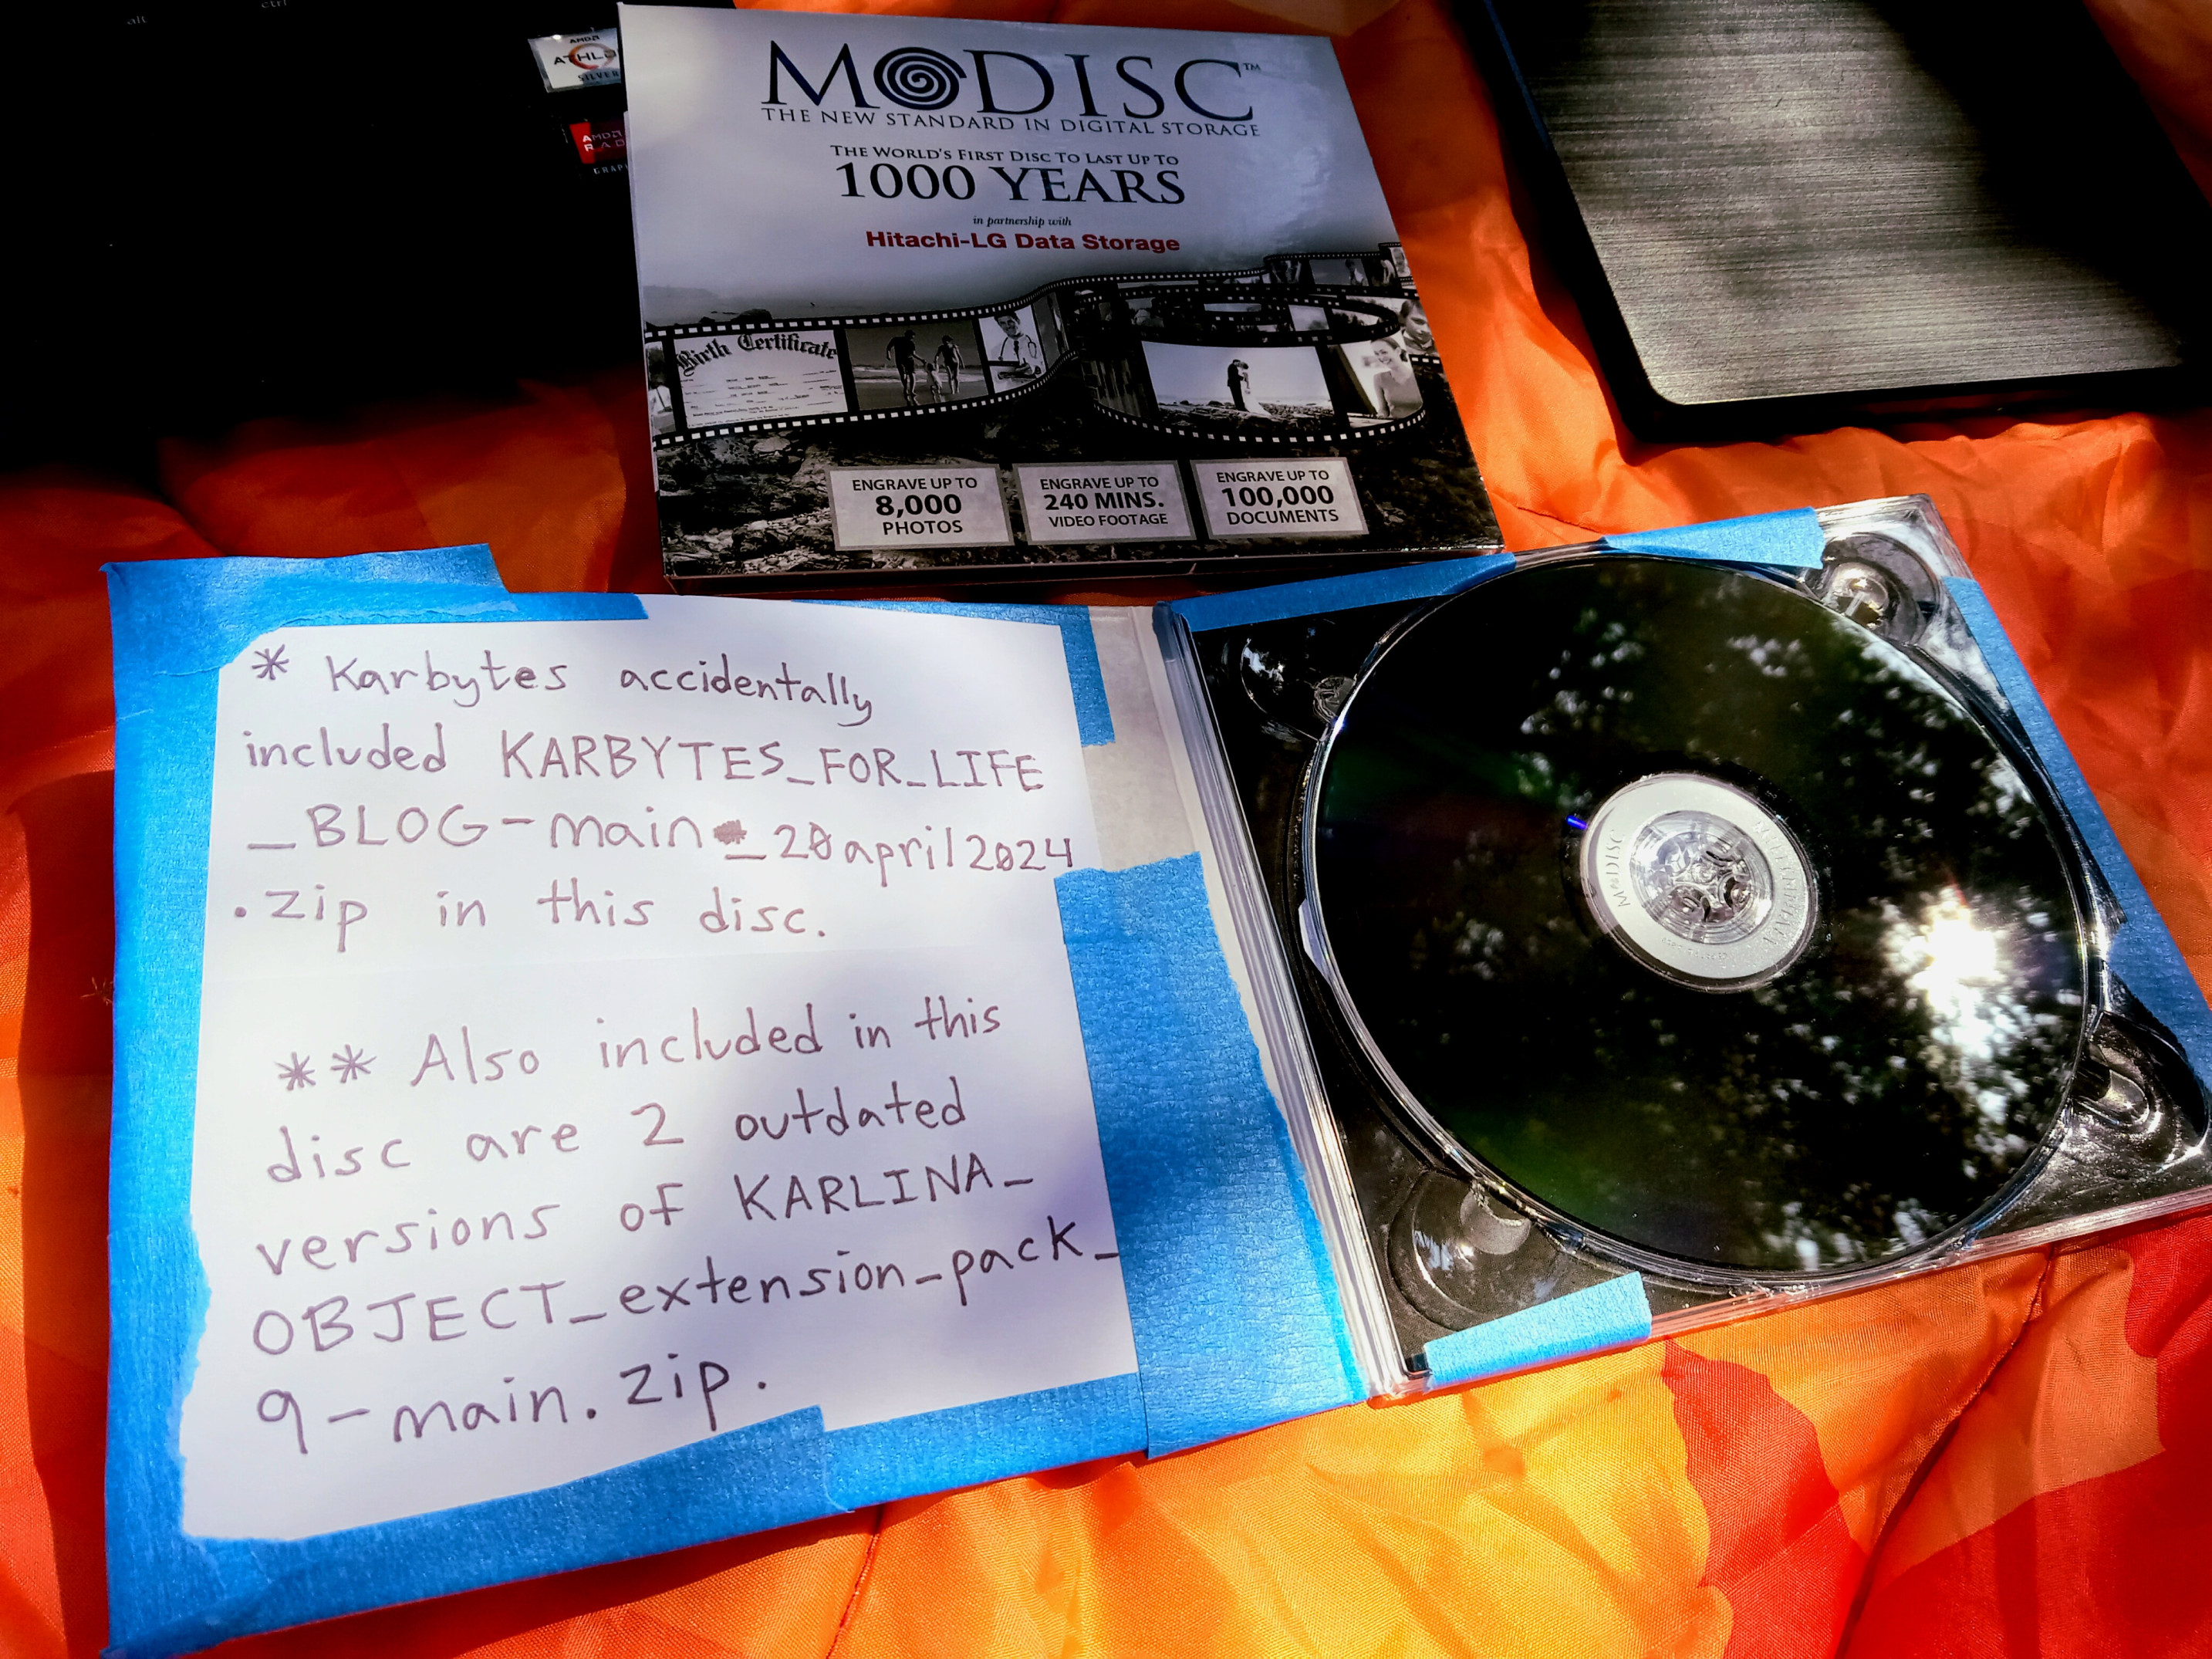 alt
ctrl
AMD
SILVER
AMD
M DISC™
THE NEW STANDARD IN DIGITAL STORAGE
THE WORLD'S FIRST DISC TO LAST UP TO
1000 YEARS
in partnership with
Hitachi-LG Data Storage
Birth Certificate
ENGRAVE UP TO
8,000
PHOTOS
ENGRAVE UP TO
240 MINS.
VIDEO FOOTAGE
ENGRAVE UP TO
100,000
DOCUMENTS
* Karbytes accidentally
included KARBYTES_FOR_LIFE
_BLOG-main_20april2024
.zip in this disc.
** Also included in this
disc are 2 outdated
versions of KARLINA_
OBJECT_extension_pack_
9-main.zip.
M DISC